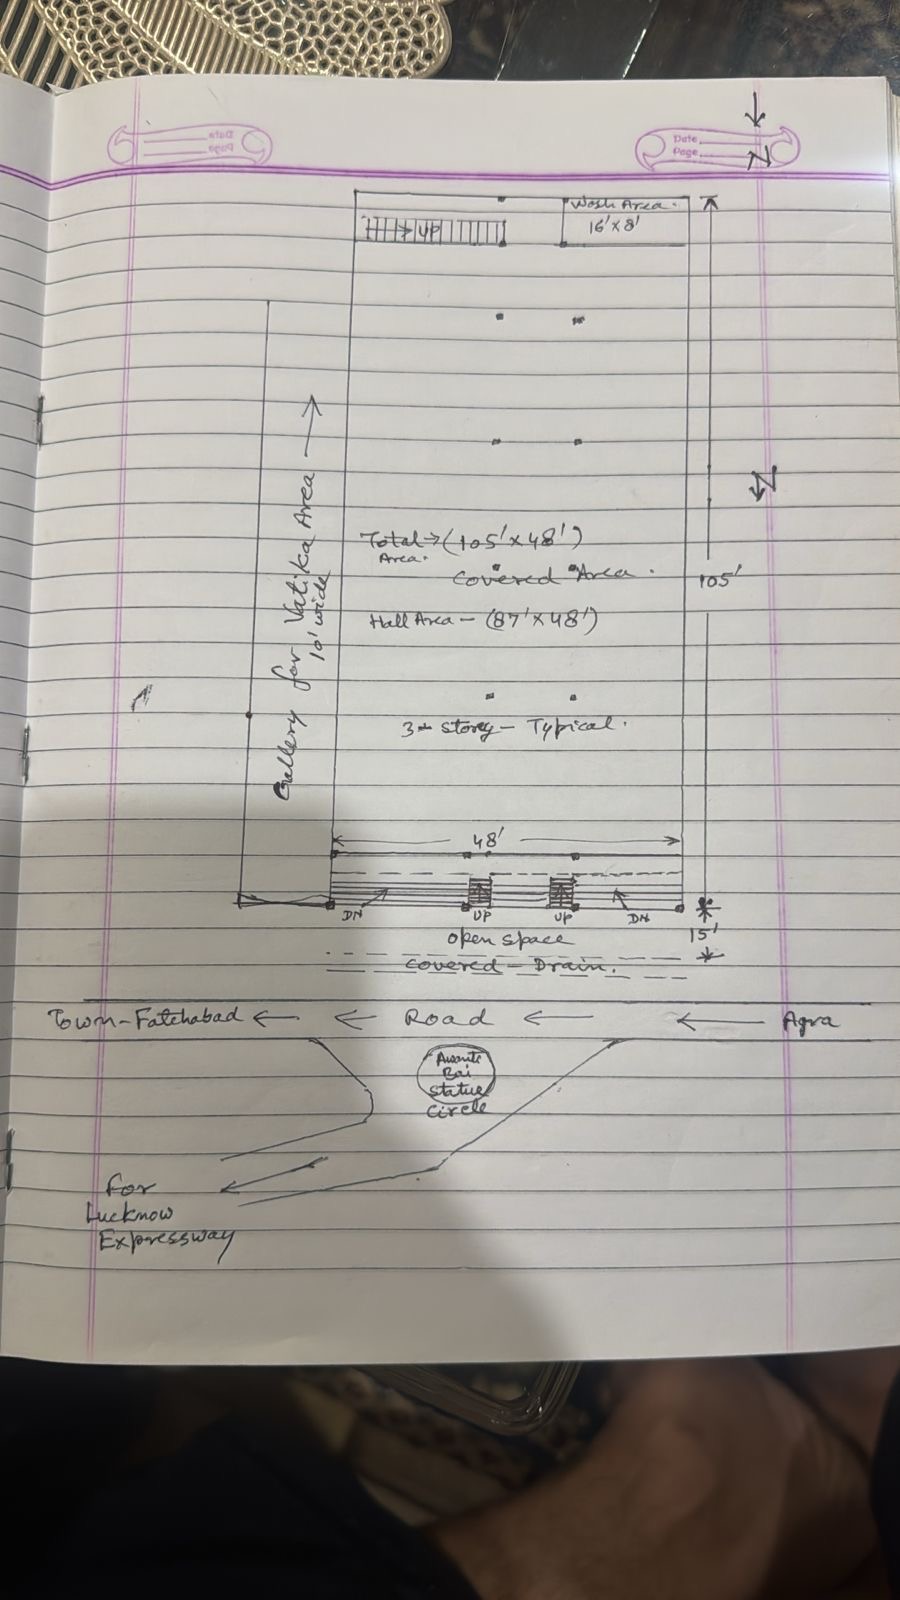 Date
Page
N
Wash Area.
16'x8'
UP
N
Gallery for Vatika Area →
10' wide
Total → (105'x48')
Area.
Covered Area.
105'
Hall Area - (87'x48')
Storey - Typical.
48'
DN UP UP DN
15'
Open space
Covered - Drain.
Town - Fatehabad ← ← Road ← ← Agra
Bai
Statue
Circle
For
Lucknow
Expressway